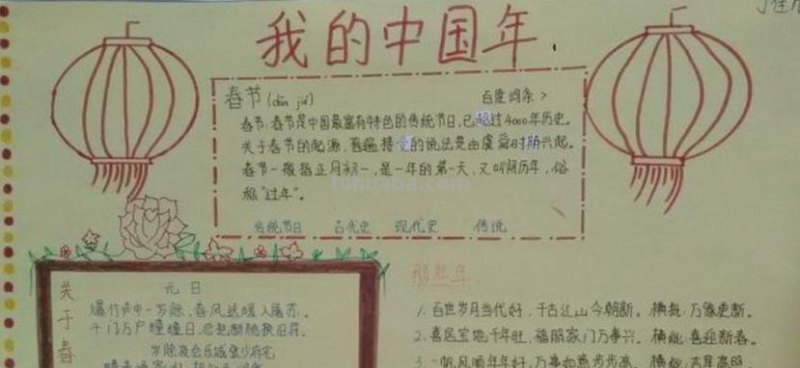 我的中国年
春节(chūn jié) 百度词条>
春节,春节是中国最富有特色的传统节日,已超过4000年历史。
关于春节的起源,普遍接受的说法是由虞舜时期兴起。
春节一般指正月初一,是一年的第一天,又叫阴历年,俗
称"过年"。
传统节日 古代史 现代史 传说
关于春
元日
爆竹声中一岁除,春风送暖入屠苏。
千门万户曈曈日,总把新桃换旧符。
那些年
1. 百世岁月当代好,千古江山今朝新。横批:万象更新。
2. 喜居宝地千年旺,福照家门万事兴。横批:喜迎新春。
3. 一帆风顺年年好,万事如意步步高。横批:吉星高照